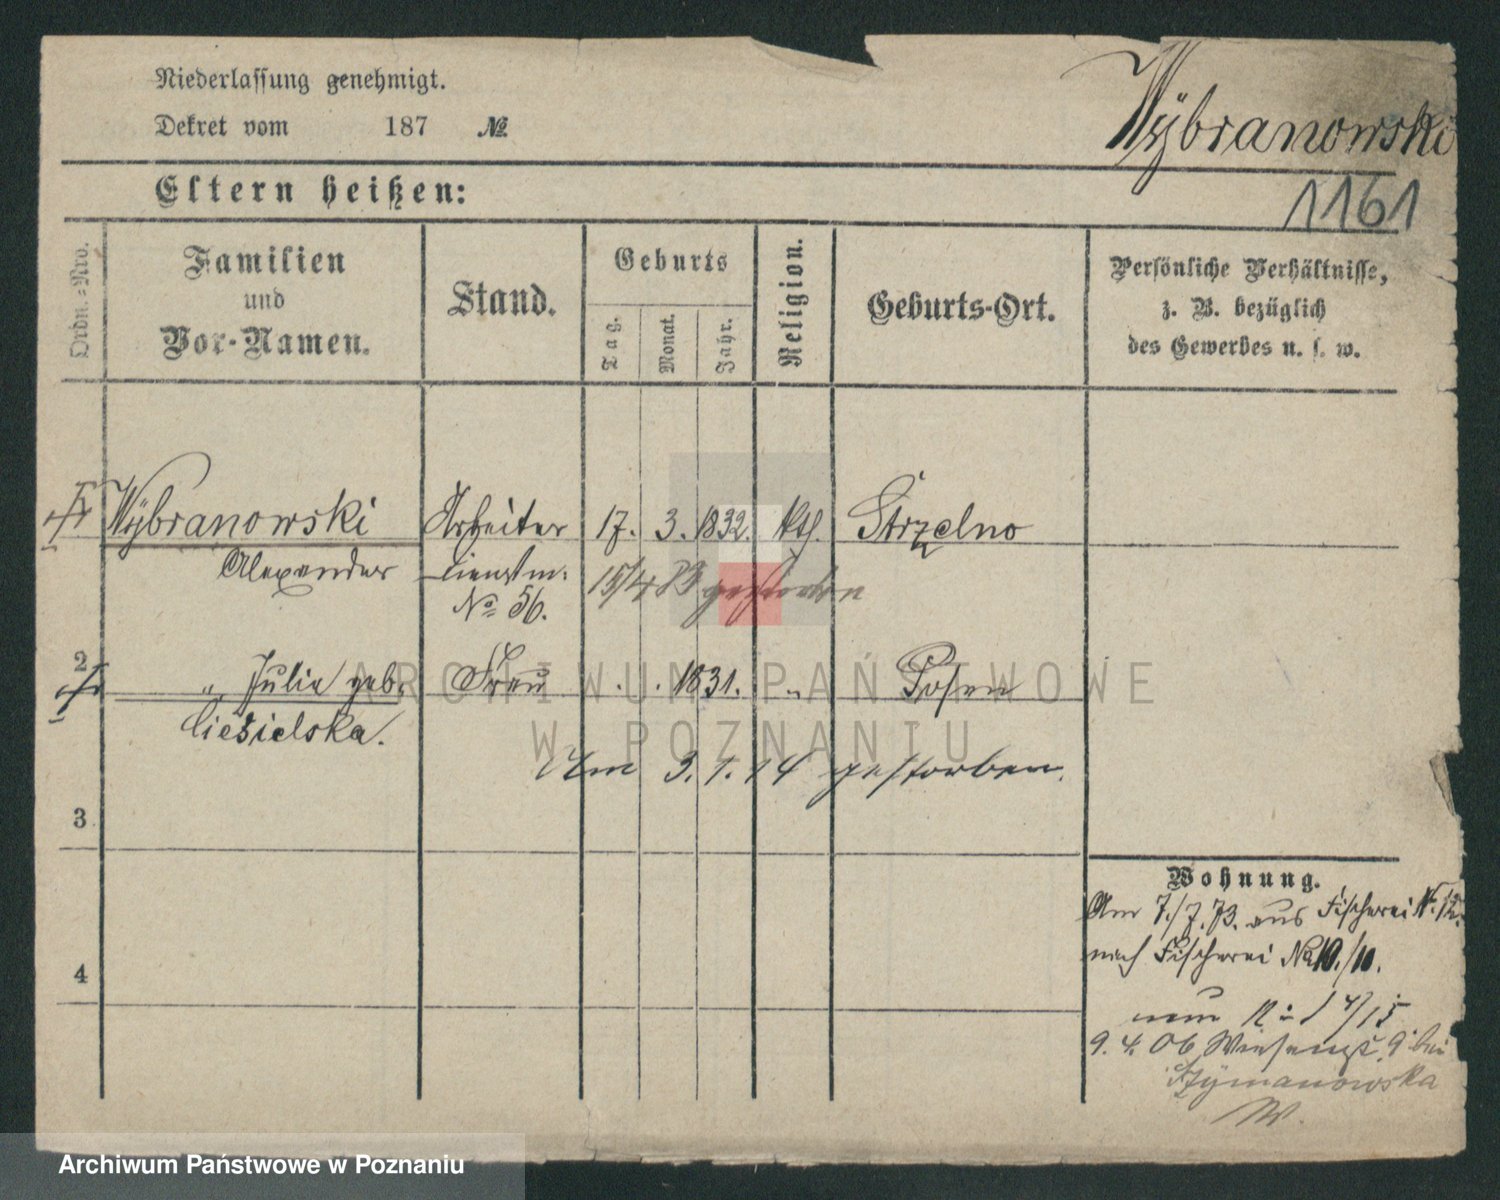 Niederlassung genehmigt.
Dekret vom 187 №
Wÿbranowski
Eltern heißen:
1161
Ordn.-Nro.
Familien
und
Vor-Namen.
Stand.
Geburts
Tag.
Monat.
Jahr.
Religion.
Geburts-Ort.
Persönliche Verhältnisse,
z. B. bezüglich
des Gewerbes u. s. w.
Wÿbranowski Arbeiter 17. 3. 1832. kth. Strzelno
Alexander Dienstm.
№ 56.
15/4 83 gestorben
2 " Julie geb. Frau . . 1831. " Posen
Ciesielska.
Am 3.1.14 gestorben.
3
4
Wohnung.
Am 7./7.73. aus Fischerei № 12.
nach Fischerei № 10./10.
9. 4. 06 Wiesenstr. 9 bei
Szÿmanowska
W.
ARCHIWUM PAŃSTWOWE
W POZNANIU
Archiwum Państwowe w Poznaniu